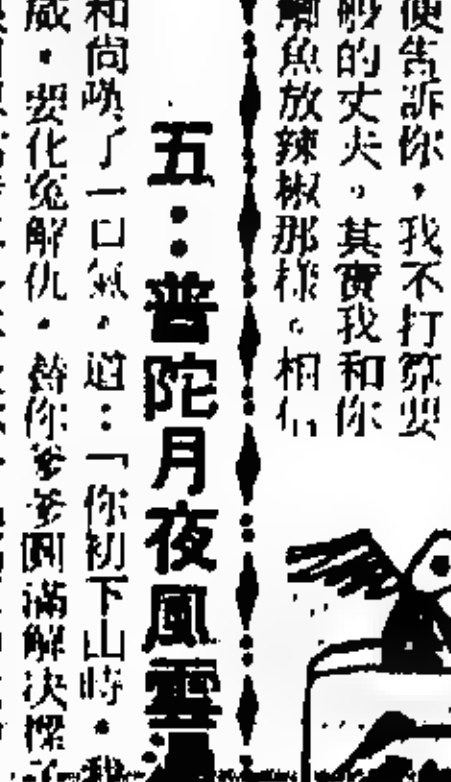 便告訴你，我不打算要
的丈夫。其實我和你
魚放辣椒那樣。相信
五：普陀月夜風雲
和尚嘆了一口氣，道：「你初下山時，我
，要化冤解仇，替你爹爹圓滿解決